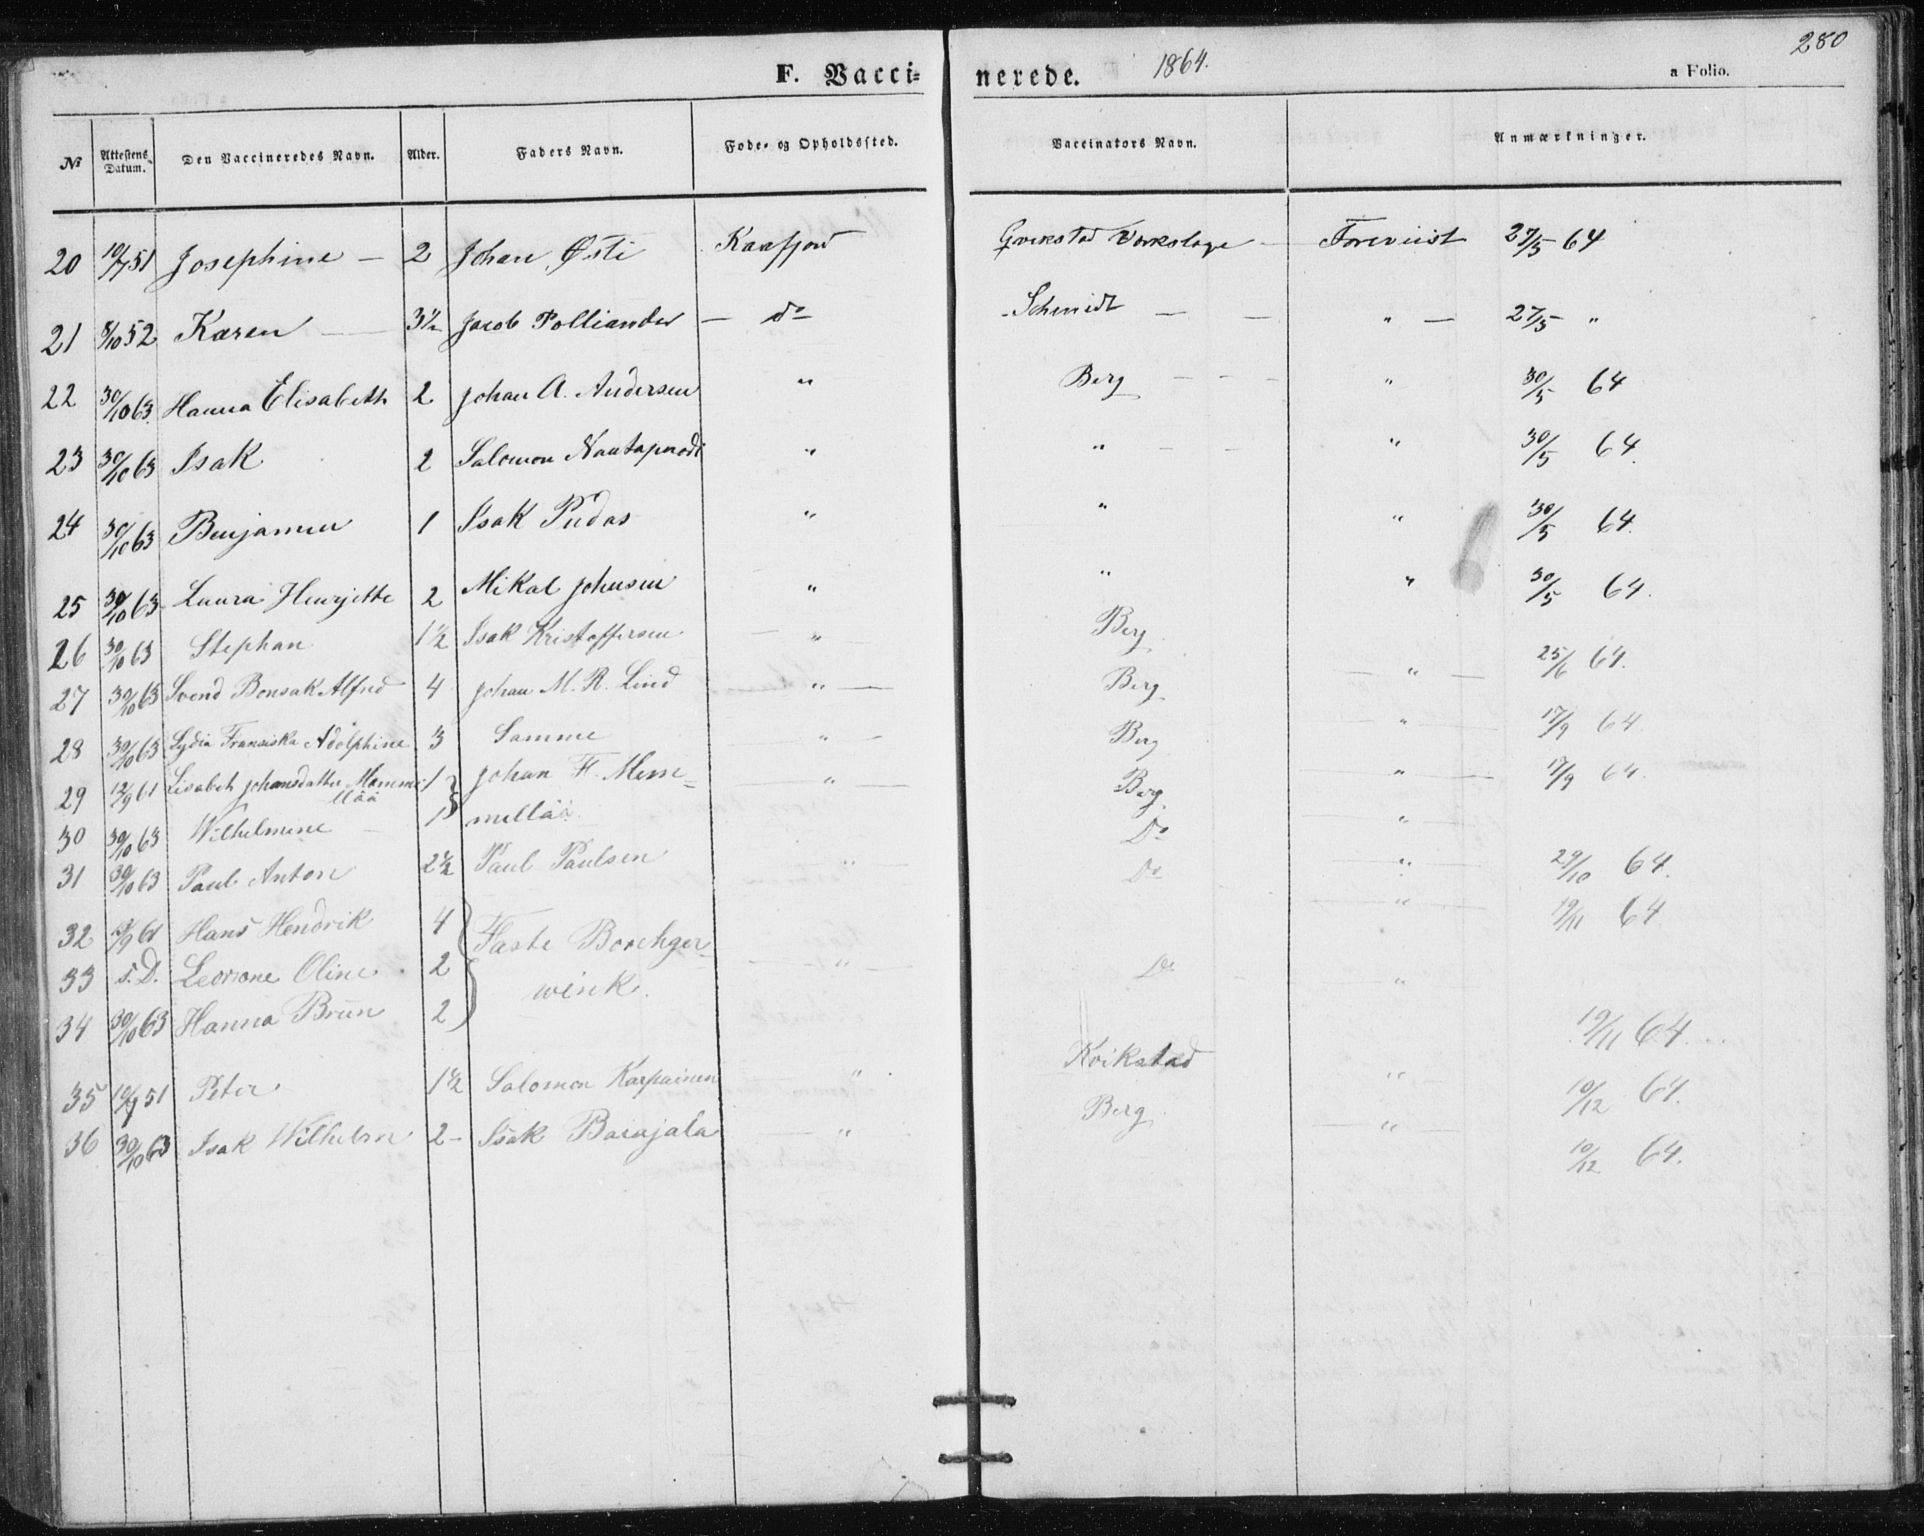 280
F. Vaccinerede. 1864. a Folio.
№ Attestens Datum. Den Vaccineredes Navn. Alder. Faders Navn. Føde- og Opholdssted. Vaccinators Navn. Anmærkninger.
20 10/7 51 Josephine — 2 Johan Østi Kaafjord Foreviist 27/5 64
21 8/10 52 Karen — 3½ Jacob Polliander — do Schmidt — — " — 27/5 "
22 30/10 63 Hanna Elisabeth 2 Johan A. Andersen " Berg — — — " 30/5 64
23 30/10 63 Isak 2 Salomon " " — — " 30/5 64.
24 30/10 63 Benjamin 1 Isak Pudas " " " 30/5 64.
25 30/10 63 Laura Henrjette 2 Mikal Johnsen " " " 30/5 64.
26 30/10 63 Stephan 1½ Isak Kristoffersen — " — Berg 25/6 64.
27 30/10 63 Svend Bonsak Alfred 4 Johan M. R. Lind " — Berg — " — 17/9 64
28 30/10 63 Lydia Fransiska Adolphine 3 Samme " — Berg — " — 17/9 64.
29 12/9 61 Lisabeth Johansdatter 1 } Johan F. — " — Berg " —
30 30/10 63 Wilhelmine — 1 } Do — " —
31 30/10 63 Paul Anton 2½ Paul Paulsen " Do — " — 29/10 64.
32 61 Hans Hendrik 4 } Faste Borchger- — " — 19/11 64
33 s. D. Leonone Oline 2 } wink. — " — Do — "
34 30/10 63 Hanna Brun 2 } 19/11 64.
35 10/7 51 Peter 1½ Salomon Karpainen — " Kvikstad " — 10/12 64.
36 30/10 63 Isak Wilhelm 2 – Isak Barajala — " — Berg — " — 10/12 64.